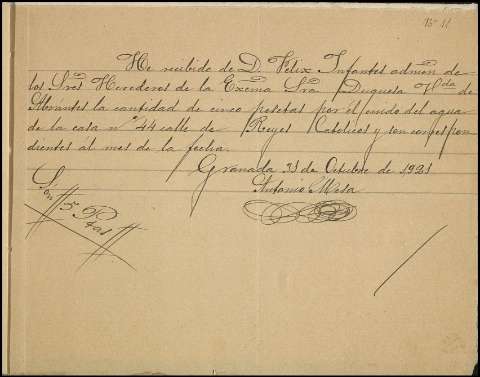 He recibido de D. Felix Infantes admon de
los Sres Herederos de la Exema Sra Duquesa Vda de
Abrantes la cantidad de cinco pesetas por el cuido del agua
de la casa nº 44 calle de Reyes Catolicos y son correspon
dientes al mes de la fecha.
Granada 31 de Octubre de 1921
Antonio Mesa
Son
5 Ptas